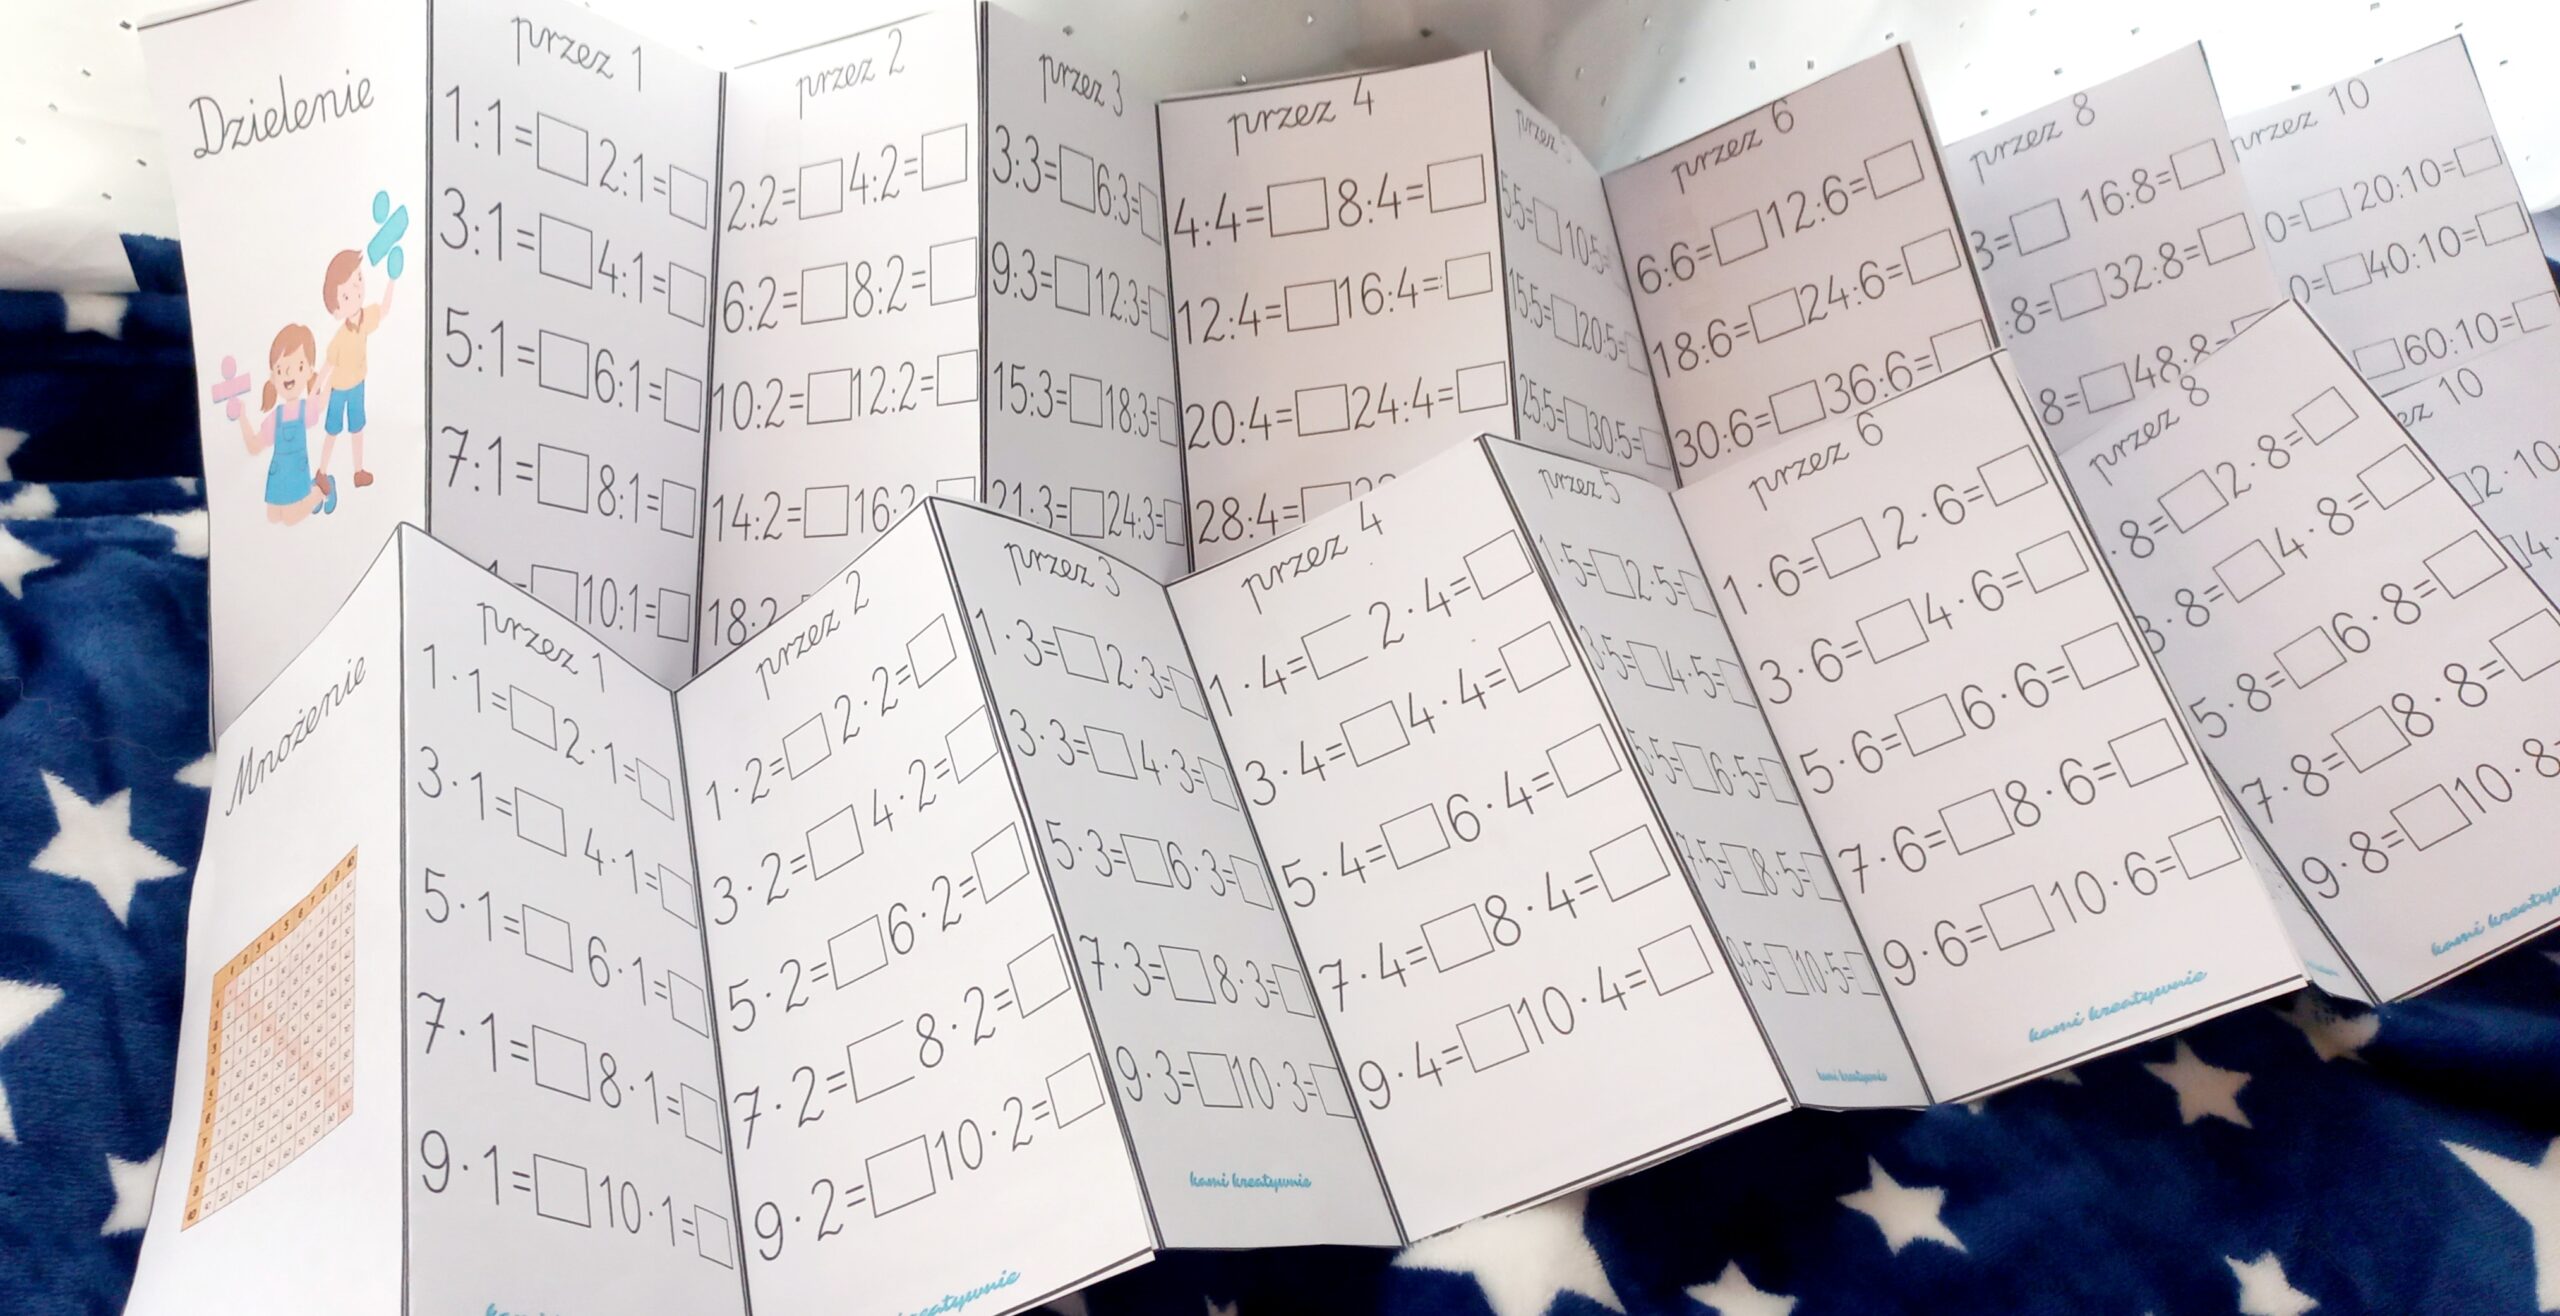 Dzielenie
przez 1
1:1= 2:1=
3:1= 4:1=
5:1= 6:1=
7:1= 8:1=
10:1=
przez 2
2:2= 4:2=
6:2= 8:2=
10:2= 12:2=
14:2= 16:2
18:2
przez 3
3:3= 6:3=
9:3= 12:3=
15:3= 18:3=
21:3= 24:3=
przez 4
4:4= 8:4=
12:4= 16:4=
20:4= 24:4=
28:4=
przez 5
5:5= 10:5=
15:5= 20:5=
25:5= 30:5=
przez 6
6:6= 12:6=
18:6= 24:6=
30:6= 36:6=
przez 8
= 16:8=
:8= 32:8=
8= 48:8=
przez 10
0= 20:10=
0= 40:10=
60:10=
Mnożenie
przez 1
1·1= 2·1=
3·1= 4·1=
5·1= 6·1=
7·1= 8·1=
9·1= 10·1=
przez 2
1·2= 2·2=
3·2= 4·2=
5·2= 6·2=
7·2= 8·2=
9·2= 10·2=
kreatywnie
przez 3
1·3= 2·3=
3·3= 4·3=
5·3= 6·3=
7·3= 8·3=
9·3= 10·3=
kami kreatywnie
przez 4
1·4= 2·4=
3·4= 4·4=
5·4= 6·4=
7·4= 8·4=
9·4= 10·4=
przez 5
1·5= 2·5=
3·5= 4·5=
5·5= 6·5=
7·5= 8·5=
9·5= 10·5=
kami kreatywnie
przez 6
1·6= 2·6=
3·6= 4·6=
5·6= 6·6=
7·6= 8·6=
9·6= 10·6=
kami kreatywnie
przez 8
·8= 2·8=
3·8= 4·8=
5·8= 6·8=
7·8= 8·8=
9·8= 10·8
kami kreatywnie
ez 10
2·10
4·